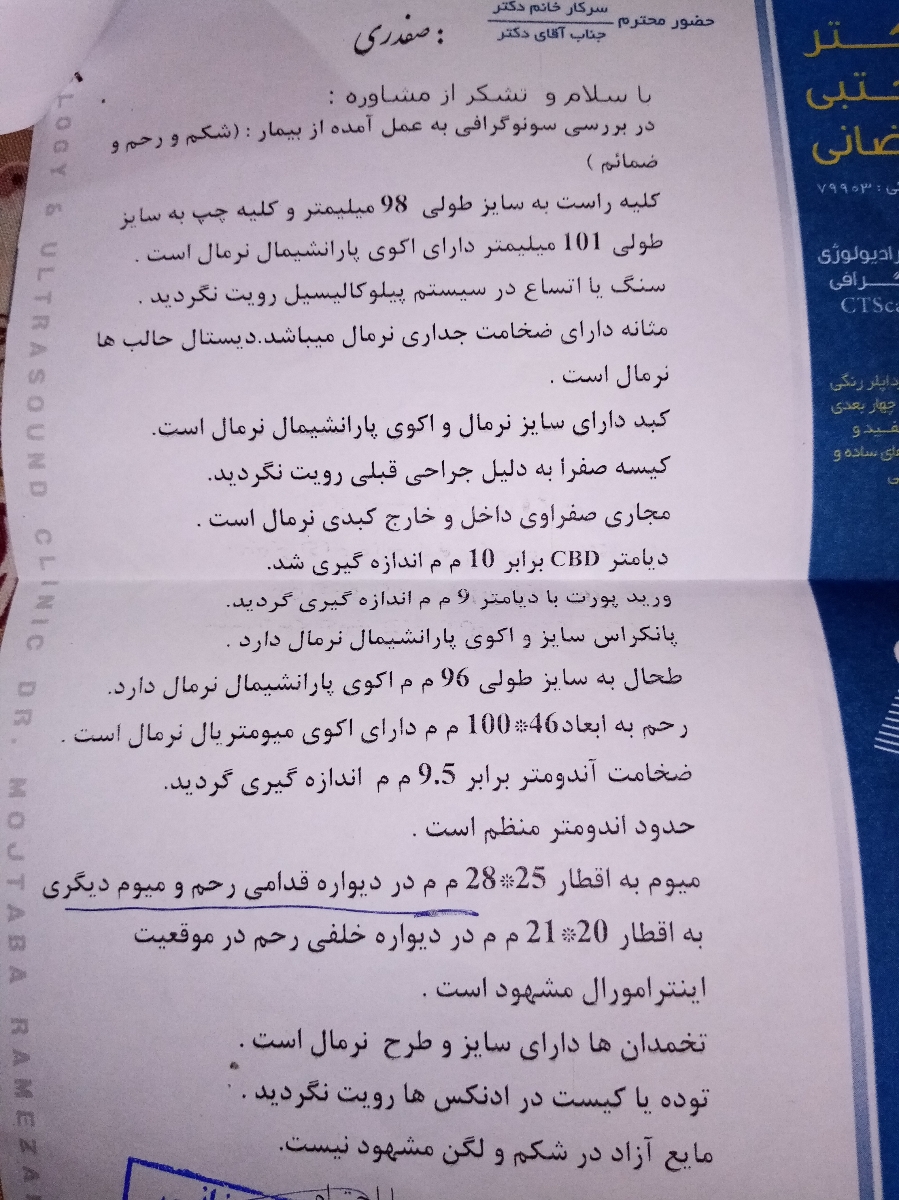 حضور محترم
سرکار خانم دکتر
جناب آقای دکتر
: صفدری
با سلام و تشکر از مشاوره :
در بررسی سونوگرافی به عمل آمده از بیمار : (شکم و رحم و
ضمائم )
کلیه راست به سایز طولی 98 میلیمتر و کلیه چپ به سایز
طولی 101 میلیمتر دارای اکوی پارانشیمال نرمال است .
سنگ یا اتساع در سیستم پیلوکالیسیل رویت نگردید .
مثانه دارای ضخامت جداری نرمال میباشد.دیستال حالب ها
نرمال است .
کبد دارای سایز نرمال و اکوی پارانشیمال نرمال است.
کیسه صفرا به دلیل جراحی قبلی رویت نگردید.
مجاری صفراوی داخل و خارج کبدی نرمال است .
دیامتر CBD برابر 10 م م اندازه گیری شد.
ورید پورت با دیامتر 9 م م اندازه گیری گردید.
پانکراس سایز و اکوی پارانشیمال نرمال دارد .
طحال به سایز طولی 96 م م اکوی پارانشیمال نرمال دارد.
رحم به ابعاد46*100 م م دارای اکوی میومتریال نرمال است .
ضخامت آندومتر برابر 9.5 م م اندازه گیری گردید.
حدود اندومتر منظم است .
میوم به اقطار 25*28 م م در دیواره قدامی رحم و میوم دیگری
به اقطار 20*21 م م در دیواره خلفی رحم در موقعیت
اینترامورال مشهود است .
تخمدان ها دارای سایز و طرح نرمال است .
توده یا کیست در ادنکس ها رویت نگردید .
مایع آزاد در شکم و لگن مشهود نیست.
LOGY & ULTRASOUND CLINIC DR. MOJTABA RAMEZA
۷۹۹۰۳
رادیولوژی
CTSca
داپلر رنگی
چهار بعدی
های ساده و